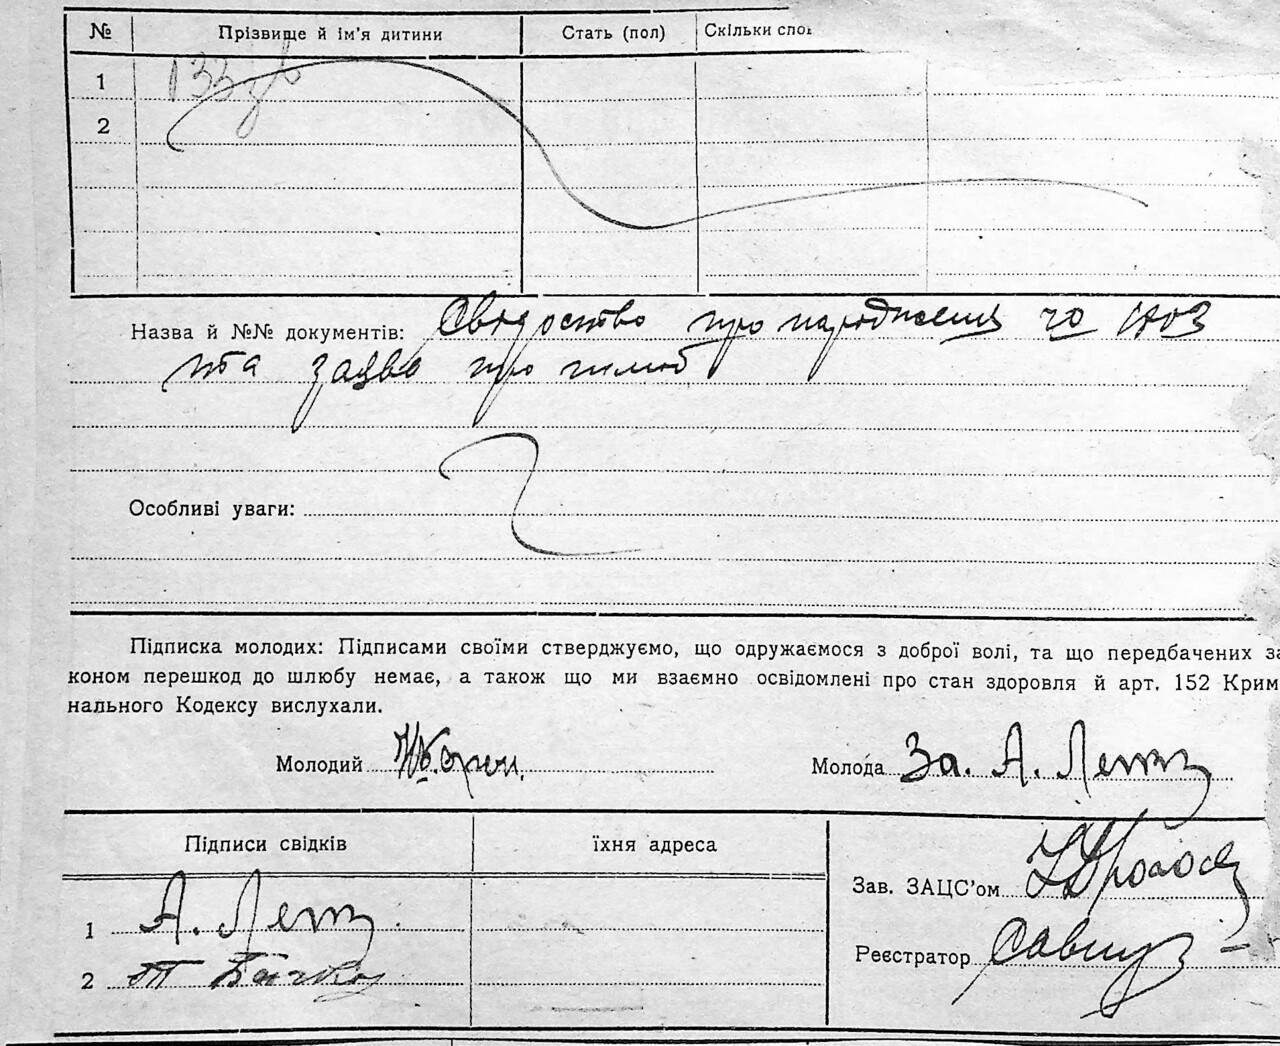 № Прізвище й ім'я дитини Стать (пол) Скільки спо
1 133
2
Назва й №№ документів: Свідоство про народження чо
та заява про шлюб
Особливі уваги:
Підписка молодих: Підписами своїми стверджуємо, що одружаємося з доброї волі, та що передбачених за
коном перешкод до шлюбу немає, а також що ми взаємно освідомлені про стан здоровля й арт. 152 Крим
нального Кодексу вислухали.
Молодий Молода За. А.
Підписи свідків їхня адреса
Зав. ЗАЦС'ом
1 А.
Реєстратор
2